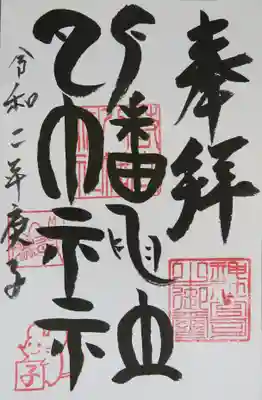 奉拝
八幡神社
令和二年庚子
子